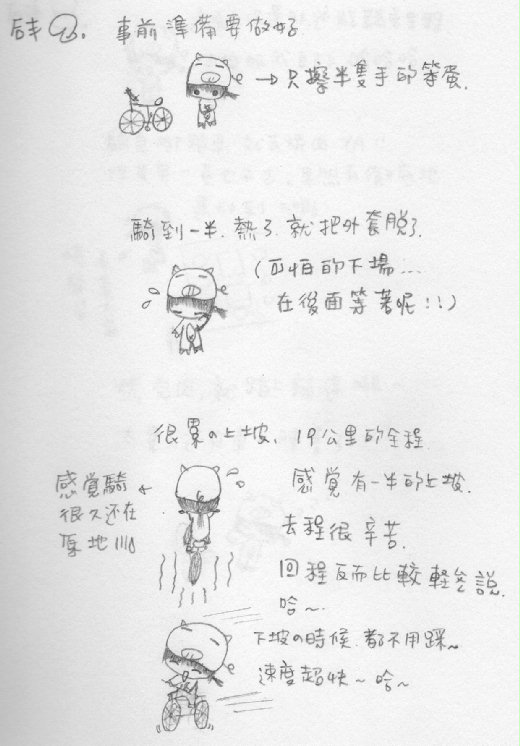 事前準備要做好
→只擦半隻手的笨蛋.
騎到一半.熱了.就把外套脫了.
(可怕的下場...
在後面等著呢!!)
很累の上坡、19公里的全程
感覚騎
很久还在
原地川
感覚有一半的上坡.
去程很辛苦.
回程反而比較軽鬆說.
哈~.
下坡の時候.都不用踩~
速度超快~哈~